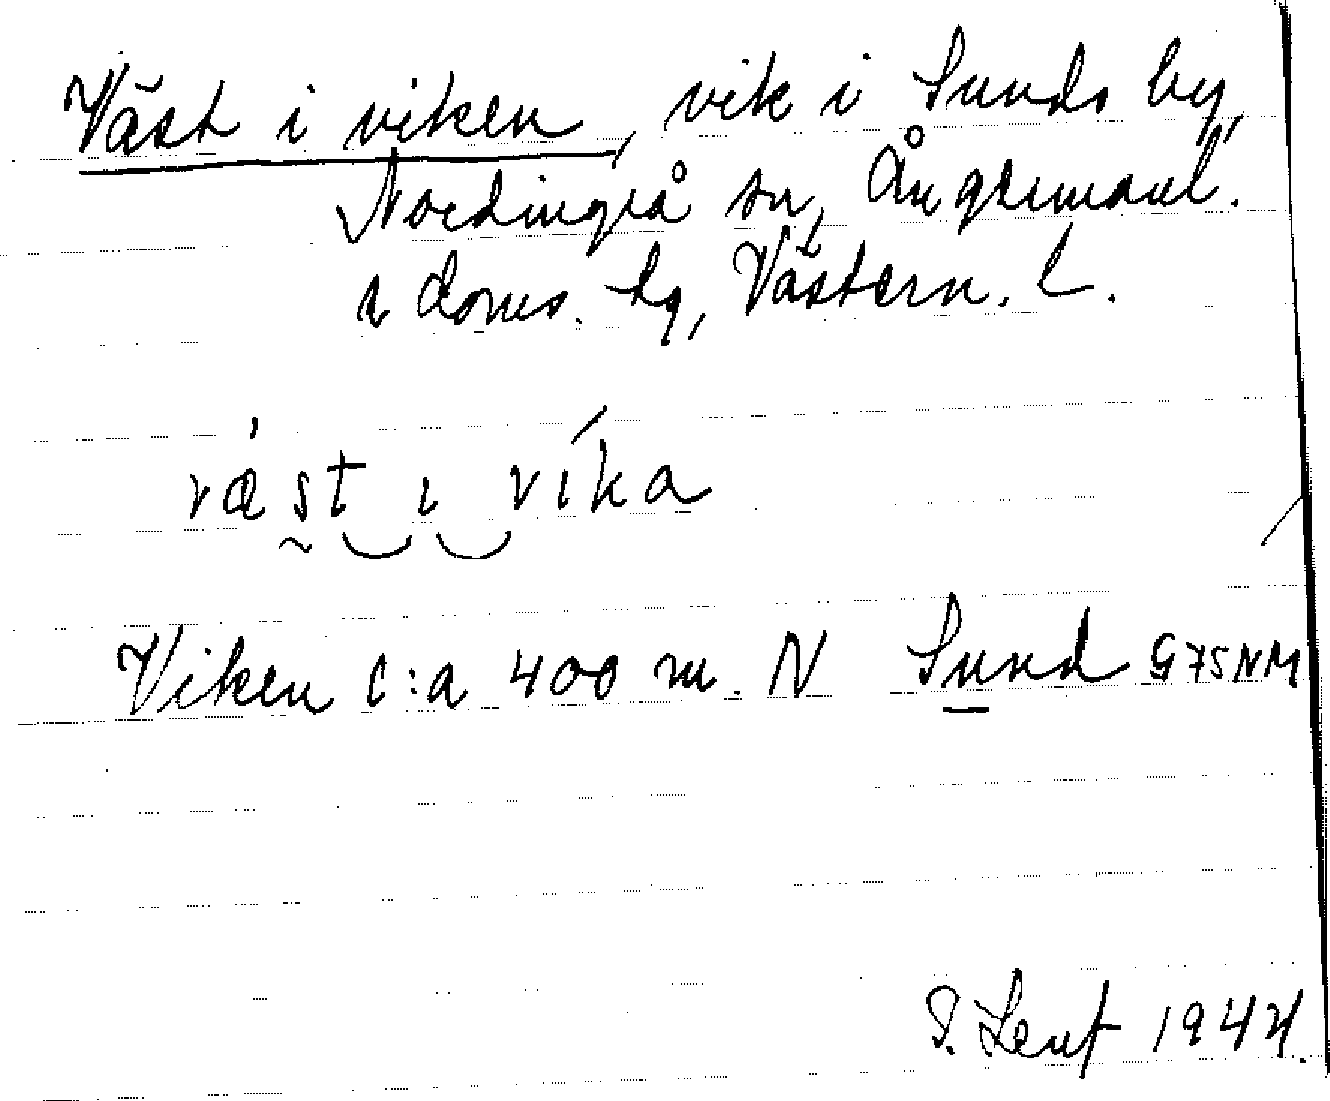 Väst i viken, vik i Sunds by,
Nordingrå sn, Ångermanl.
s doms. tg, Västern. l.
väst ı víka
Viken c:a 400 m. N Sund G75NM
1944.